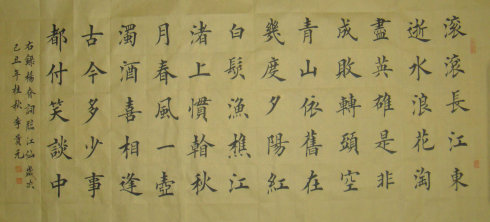 滚滚長江東
逝水浪花淘
盡英雄是非
成敗轉頭空
青山依舊在
幾度夕陽紅
白髮漁樵江
渚上慣看秋
月春風一壺
濁酒喜相逢
古今多少事
都付笑談中
右錄楊昚詞臨江仙歲次
己丑年桂秋李貴元